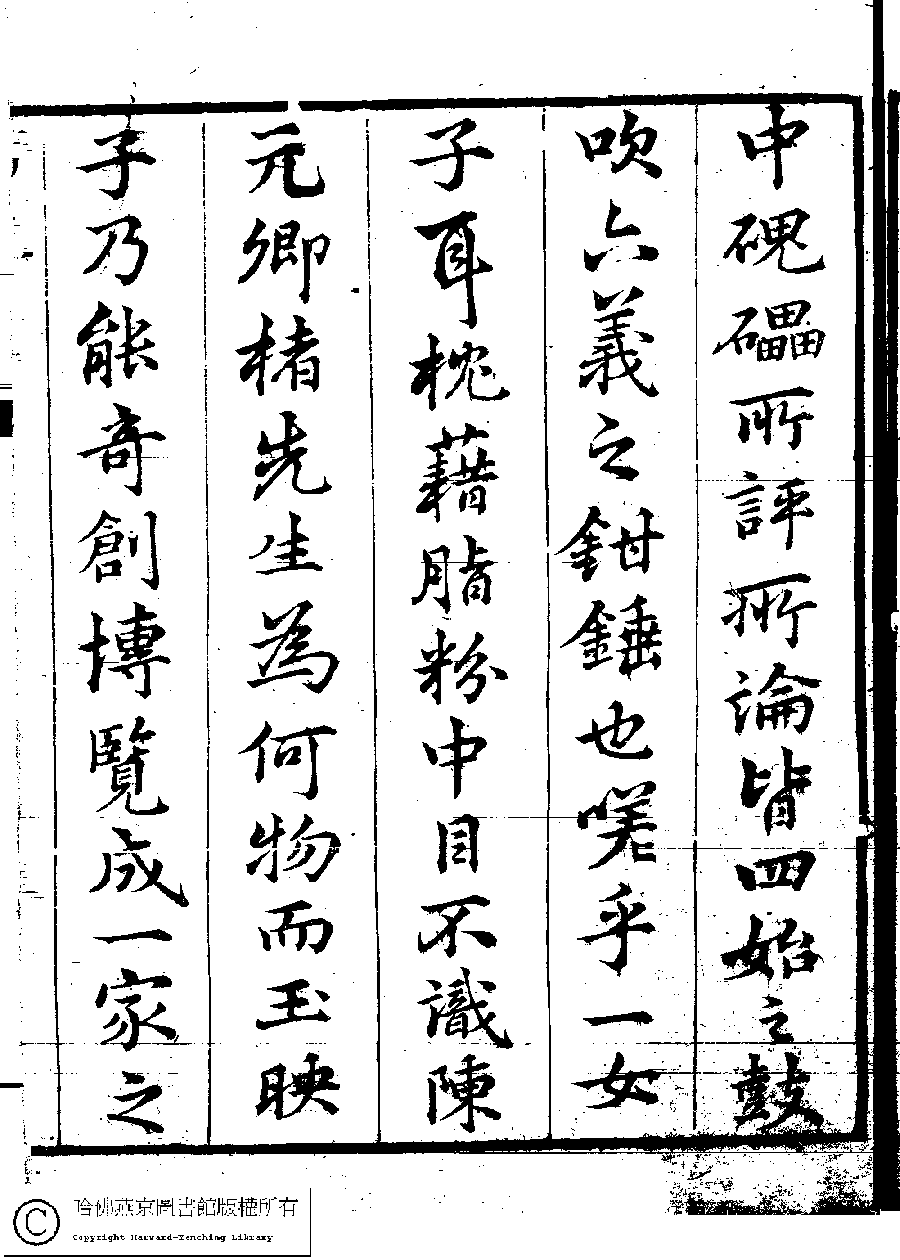 中磈礧所評所論皆四始之鼓
吹六義之鉗錘也嗟乎一女
子耳枕藉脂粉中目不識陳
元卿楮先生為何物而玉映
子乃能奇創博覽成一家之
哈佛燕京圖書館版權所有
Copyright Harvard-Yenching Library